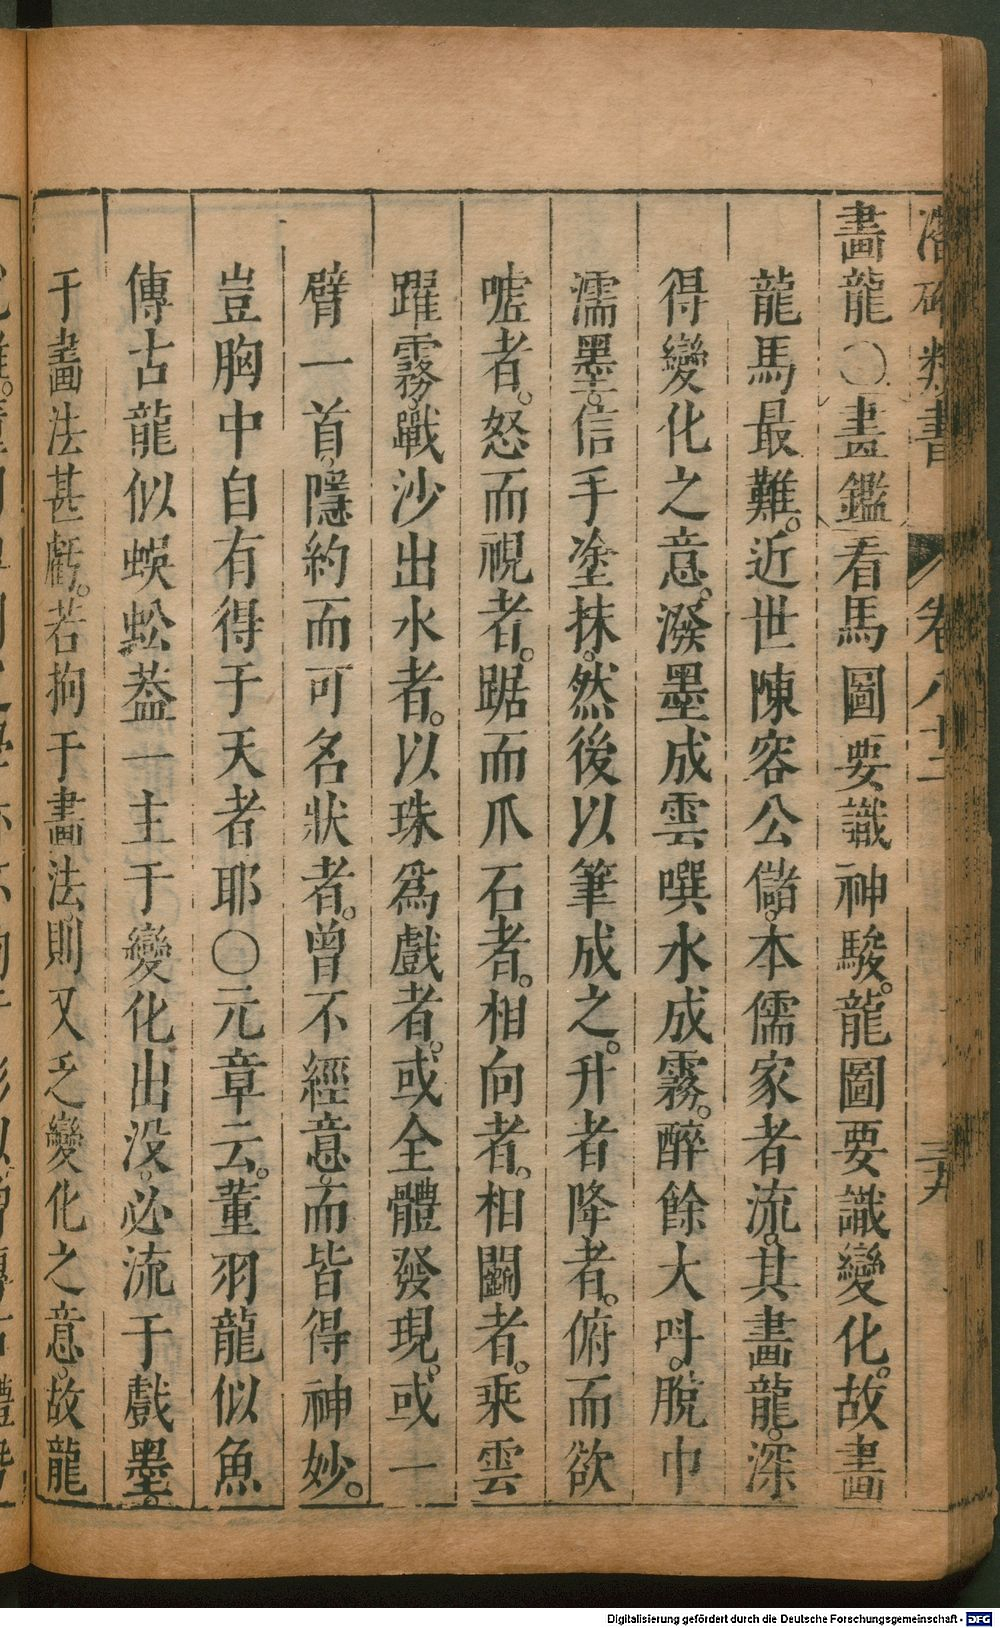 潛確類書 卷八十二 三九
畫龍〇畫鑑看馬圖要識神駿。龍圖要識變化。故畫
龍馬最難。近世陳容公儲。本儒家者流。其畫龍。深
得變化之意。潑墨成雲噀水成霧。醉餘大呌。脫巾
濡墨。信手塗抹。然後以筆成之。升者降者。俯而欲
嘘者。怒而視者。踞而爪石者。相向者。相鬬者。乘雲
躍霧。戰沙出水者。以珠爲戲者。或全體發現。或一
臂一首。隱約而可名狀者。曾不經意。而皆得神妙。
豈胸中自有得于天者耶〇元章云。董羽龍似魚
傳古龍似蜈蚣葢一主于變化出没。必流于戲墨。
于畫法甚虧。若拘于畫法。則又乏變化之意。故龍
Digitalisierung gefördert durch die Deutsche Forschungsgemeinschaft - DFG